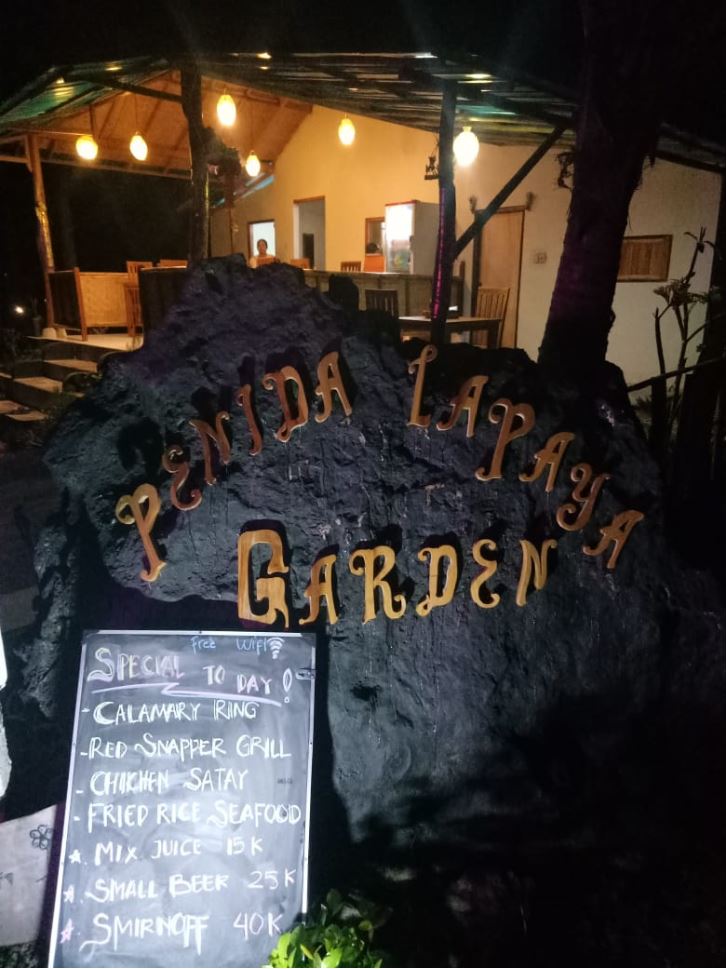 PENIDA LAPAYA
GARDEN
Free Wifi
SPECIAL TO DAY!
- CALAMARY RING
- RED SNAPPER GRILL
- CHIKHEN SATAY
- FRIED RICE SEAFOOD
* MIX JUICE 15 K
* SMALL BEER 25 K
* SMIRNOFF 40K